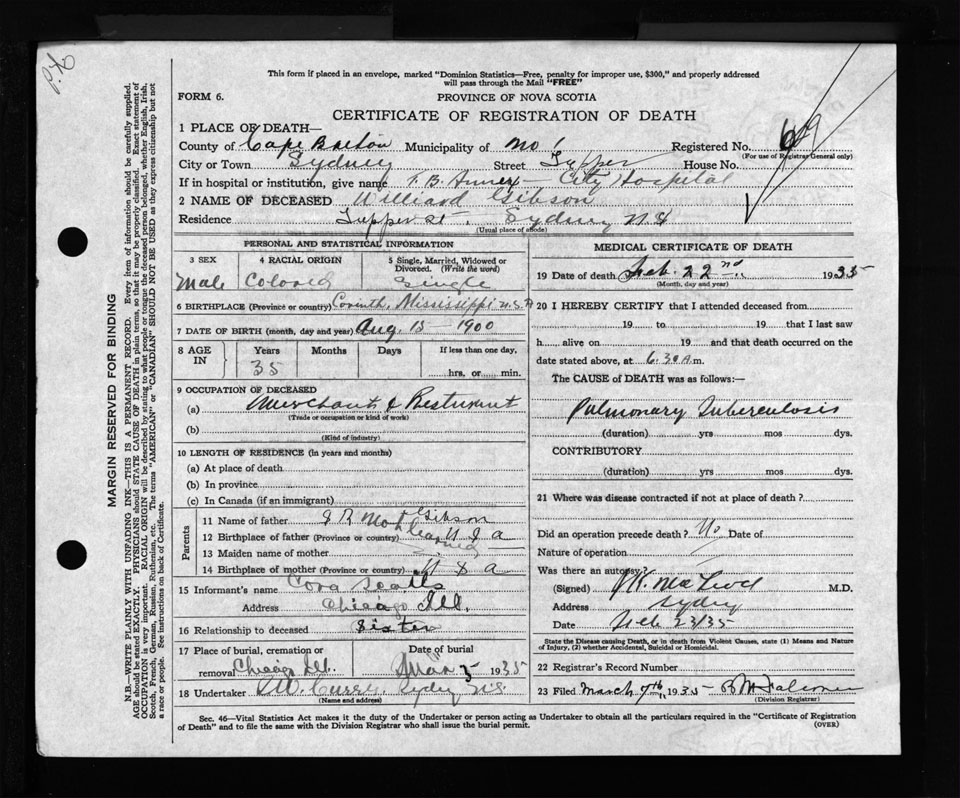 This form if placed in an envelope, marked "Dominion Statistics—Free, penalty for improper use, $300," and properly addressed
will pass through the Mail "FREE"
FORM 6.
PROVINCE OF NOVA SCOTIA
CERTIFICATE OF REGISTRATION OF DEATH
1 PLACE OF DEATH—
County of Cape Breton Municipality of No 1 Registered No. 619
(For use of Registrar General only)
City or Town Sydney Street Tupper House No.
If in hospital or institution, give name T.B. Annex — City Hospital
2 NAME OF DECEASED Williard Gibson
Residence Tupper St. Sydney N.S
(Usual place of abode)
MARGIN RESERVED FOR BINDING
N.B.—WRITE PLAINLY WITH UNFADING INK—THIS IS A PERMANENT RECORD. Every item of information should be carefully supplied.
AGE should be stated EXACTLY. PHYSICIANS should STATE CAUSE OF DEATH in plain terms, so that it may be properly classified. Exact statement of
OCCUPATION is very important. RACIAL ORIGIN will be described by stating to what people or tongue the deceased person belonged, whether English, Irish,
Scotch, French, German, Russian, Ruthenian, etc. The terms "AMERICAN" or "CANADIAN" SHOULD NOT BE USED as they express citizenship but not
a race or people. See instructions on back of Certificate.
PERSONAL AND STATISTICAL INFORMATION
3 SEX 4 RACIAL ORIGIN 5 Single, Married, Widowed or
Divorced. (Write the word)
Male Colored Single
6 BIRTHPLACE (Province or country) Corinth, Mississippi U.S.A
7 DATE OF BIRTH (month, day and year) Aug. 15 — 1900
8 AGE IN Years Months Days If less than one day.
35 hrs. or min.
9 OCCUPATION OF DECEASED
(a) Merchant & Resturant
(Trade or occupation or kind of work)
(b)
(Kind of industry)
10 LENGTH OF RESIDENCE (in years and months)
(a) At place of death
(b) In province
(c) In Canada (if an immigrant)
Parents
11 Name of father Gibson
12 Birthplace of father (Province or country) U S a
13 Maiden name of mother
14 Birthplace of mother (Province or country) U S a
15 Informant's name Cora
Address Chicago Ill.
16 Relationship to deceased Sister
17 Place of burial, cremation or Date of burial
removal Chicago Ill. Mar 5 1935
18 Undertaker Sydney N.S.
(Name and address)
MEDICAL CERTIFICATE OF DEATH
19 Date of death Feb. 22nd 1935
(Month, day and year)
20 I HEREBY CERTIFY that I attended deceased from
19 to 19 that I last saw
h alive on 19 and that death occurred on the
date stated above, at 6.30 A.m.
The CAUSE of DEATH was as follows:—
Pulmonary Tuberculosis
(duration) yrs mos dys.
CONTRIBUTORY
(duration) yrs mos dys.
21 Where was disease contracted if not at place of death?
Did an operation precede death? No Date of
Nature of operation
Was there an autopsy?
(Signed) M.D.
Address Sydney
Date Feb 23/35
State the Disease causing Death, or in death from Violent Causes, state (1) Means and Nature
of Injury, (2) whether Accidental, Suicidal or Homicidal.
22 Registrar's Record Number
23 Filed March 7th 1935
(Division Registrar)
Sec. 46—Vital Statistics Act makes it the duty of the Undertaker or person acting as Undertaker to obtain all the particulars required in the "Certificate of Registration
of Death" and to file the same with the Division Registrar who shall issue the burial permit. (OVER)